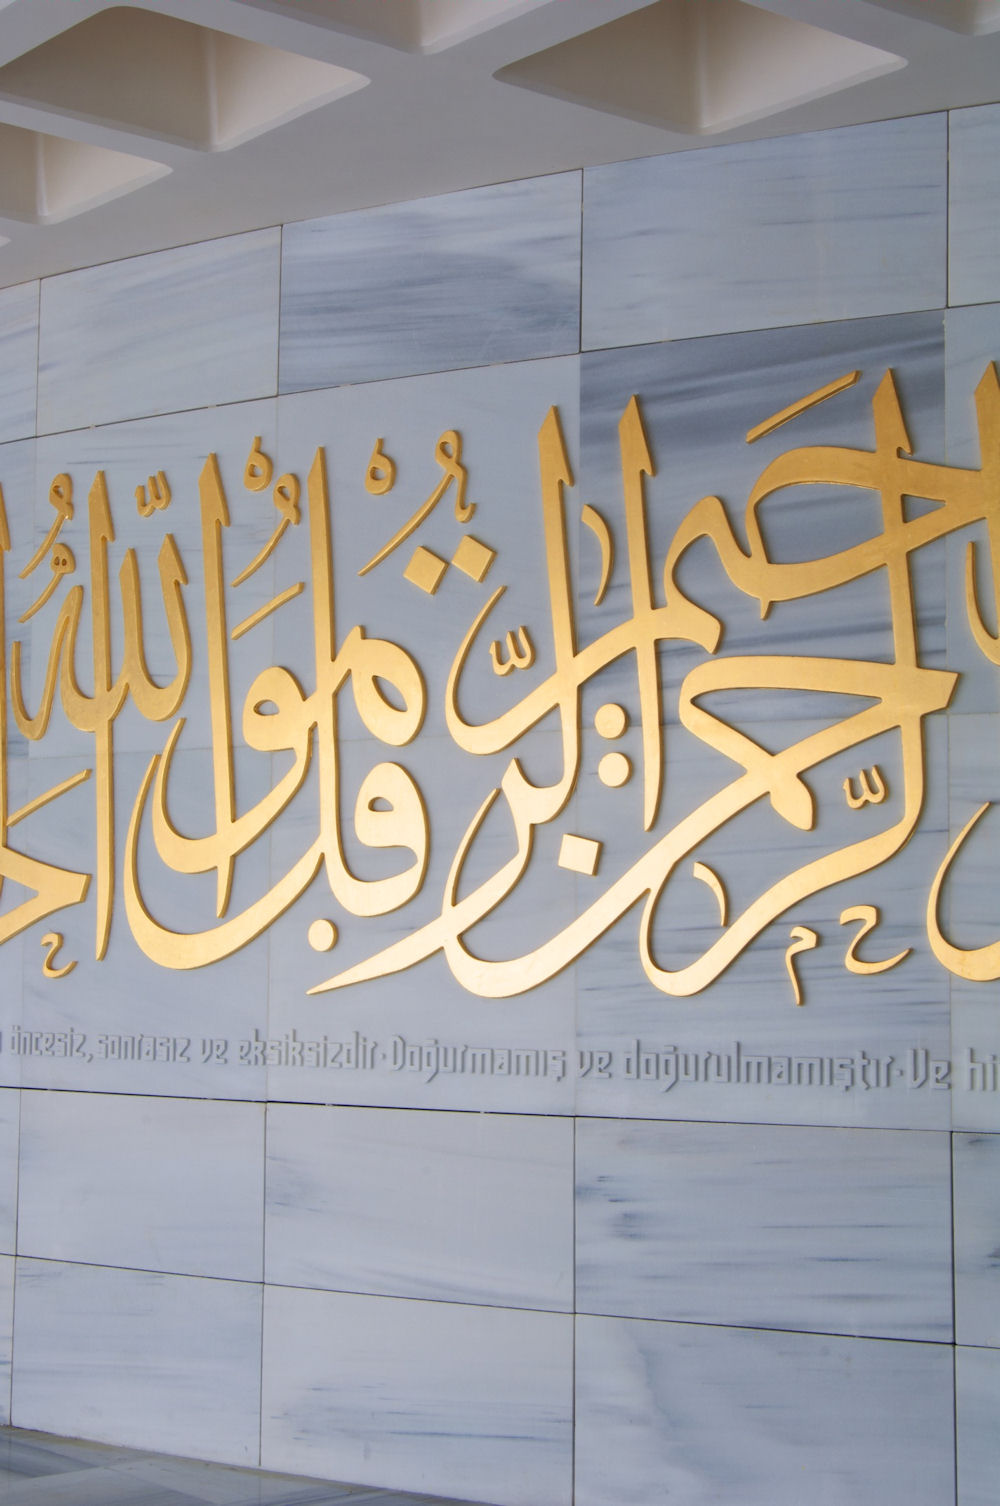 الرحمن الرحيم قل هو الله
öncesiz, sonrasız ve eksiksizdir · Doğurmamış ve doğurulmamıştır · Ve